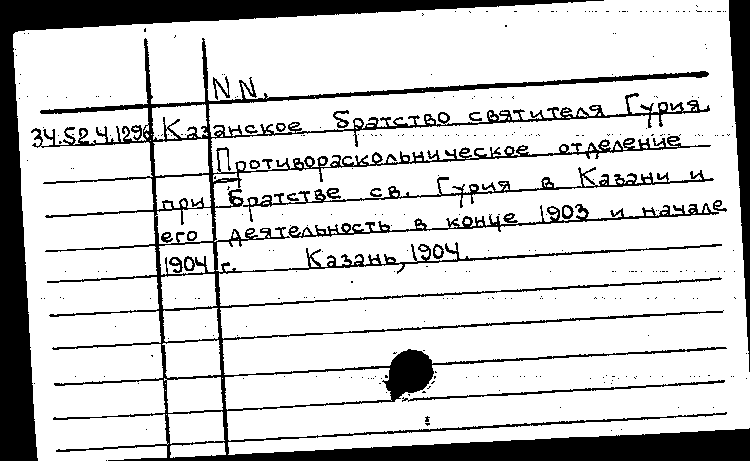 N N.
34.52.4.1296. Казанское братство святителя Гурия.
Противораскольническое отделение
при братстве св. Гурия в Казани и
его деятельность в конце 1903 и начале
1904 г. Казань, 1904.